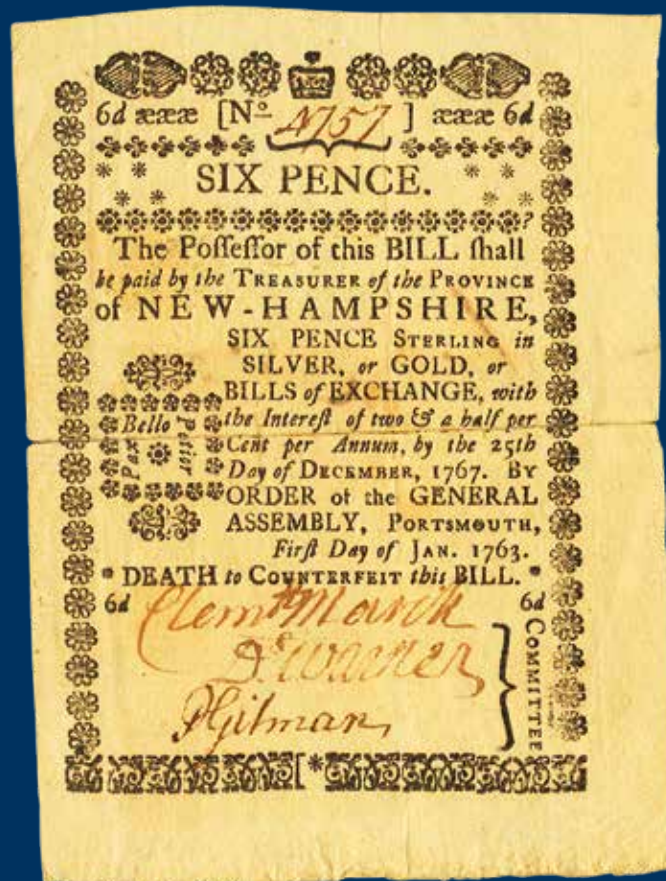 6d ææææ [No 4757] ææææ 6d
SIX PENCE.
The Poſſeſſor of this BILL ſhall
be paid by the TREASURER of the PROVINCE
of NEW-HAMPSHIRE,
SIX PENCE STERLING in
SILVER, or GOLD, or
BILLS of EXCHANGE, with
the Intereſt of two & a half per
Cent per Annum, by the 25th
Day of DECEMBER, 1767. BY
ORDER of the GENERAL
ASSEMBLY, PORTSMOUTH,
Firſt Day of JAN. 1763.
Pax
Bello
Potior
* DEATH to COUNTERFEIT this BILL. *
6d 6d
Clemt March
Dl Warner
PGilman
COMMITTEE